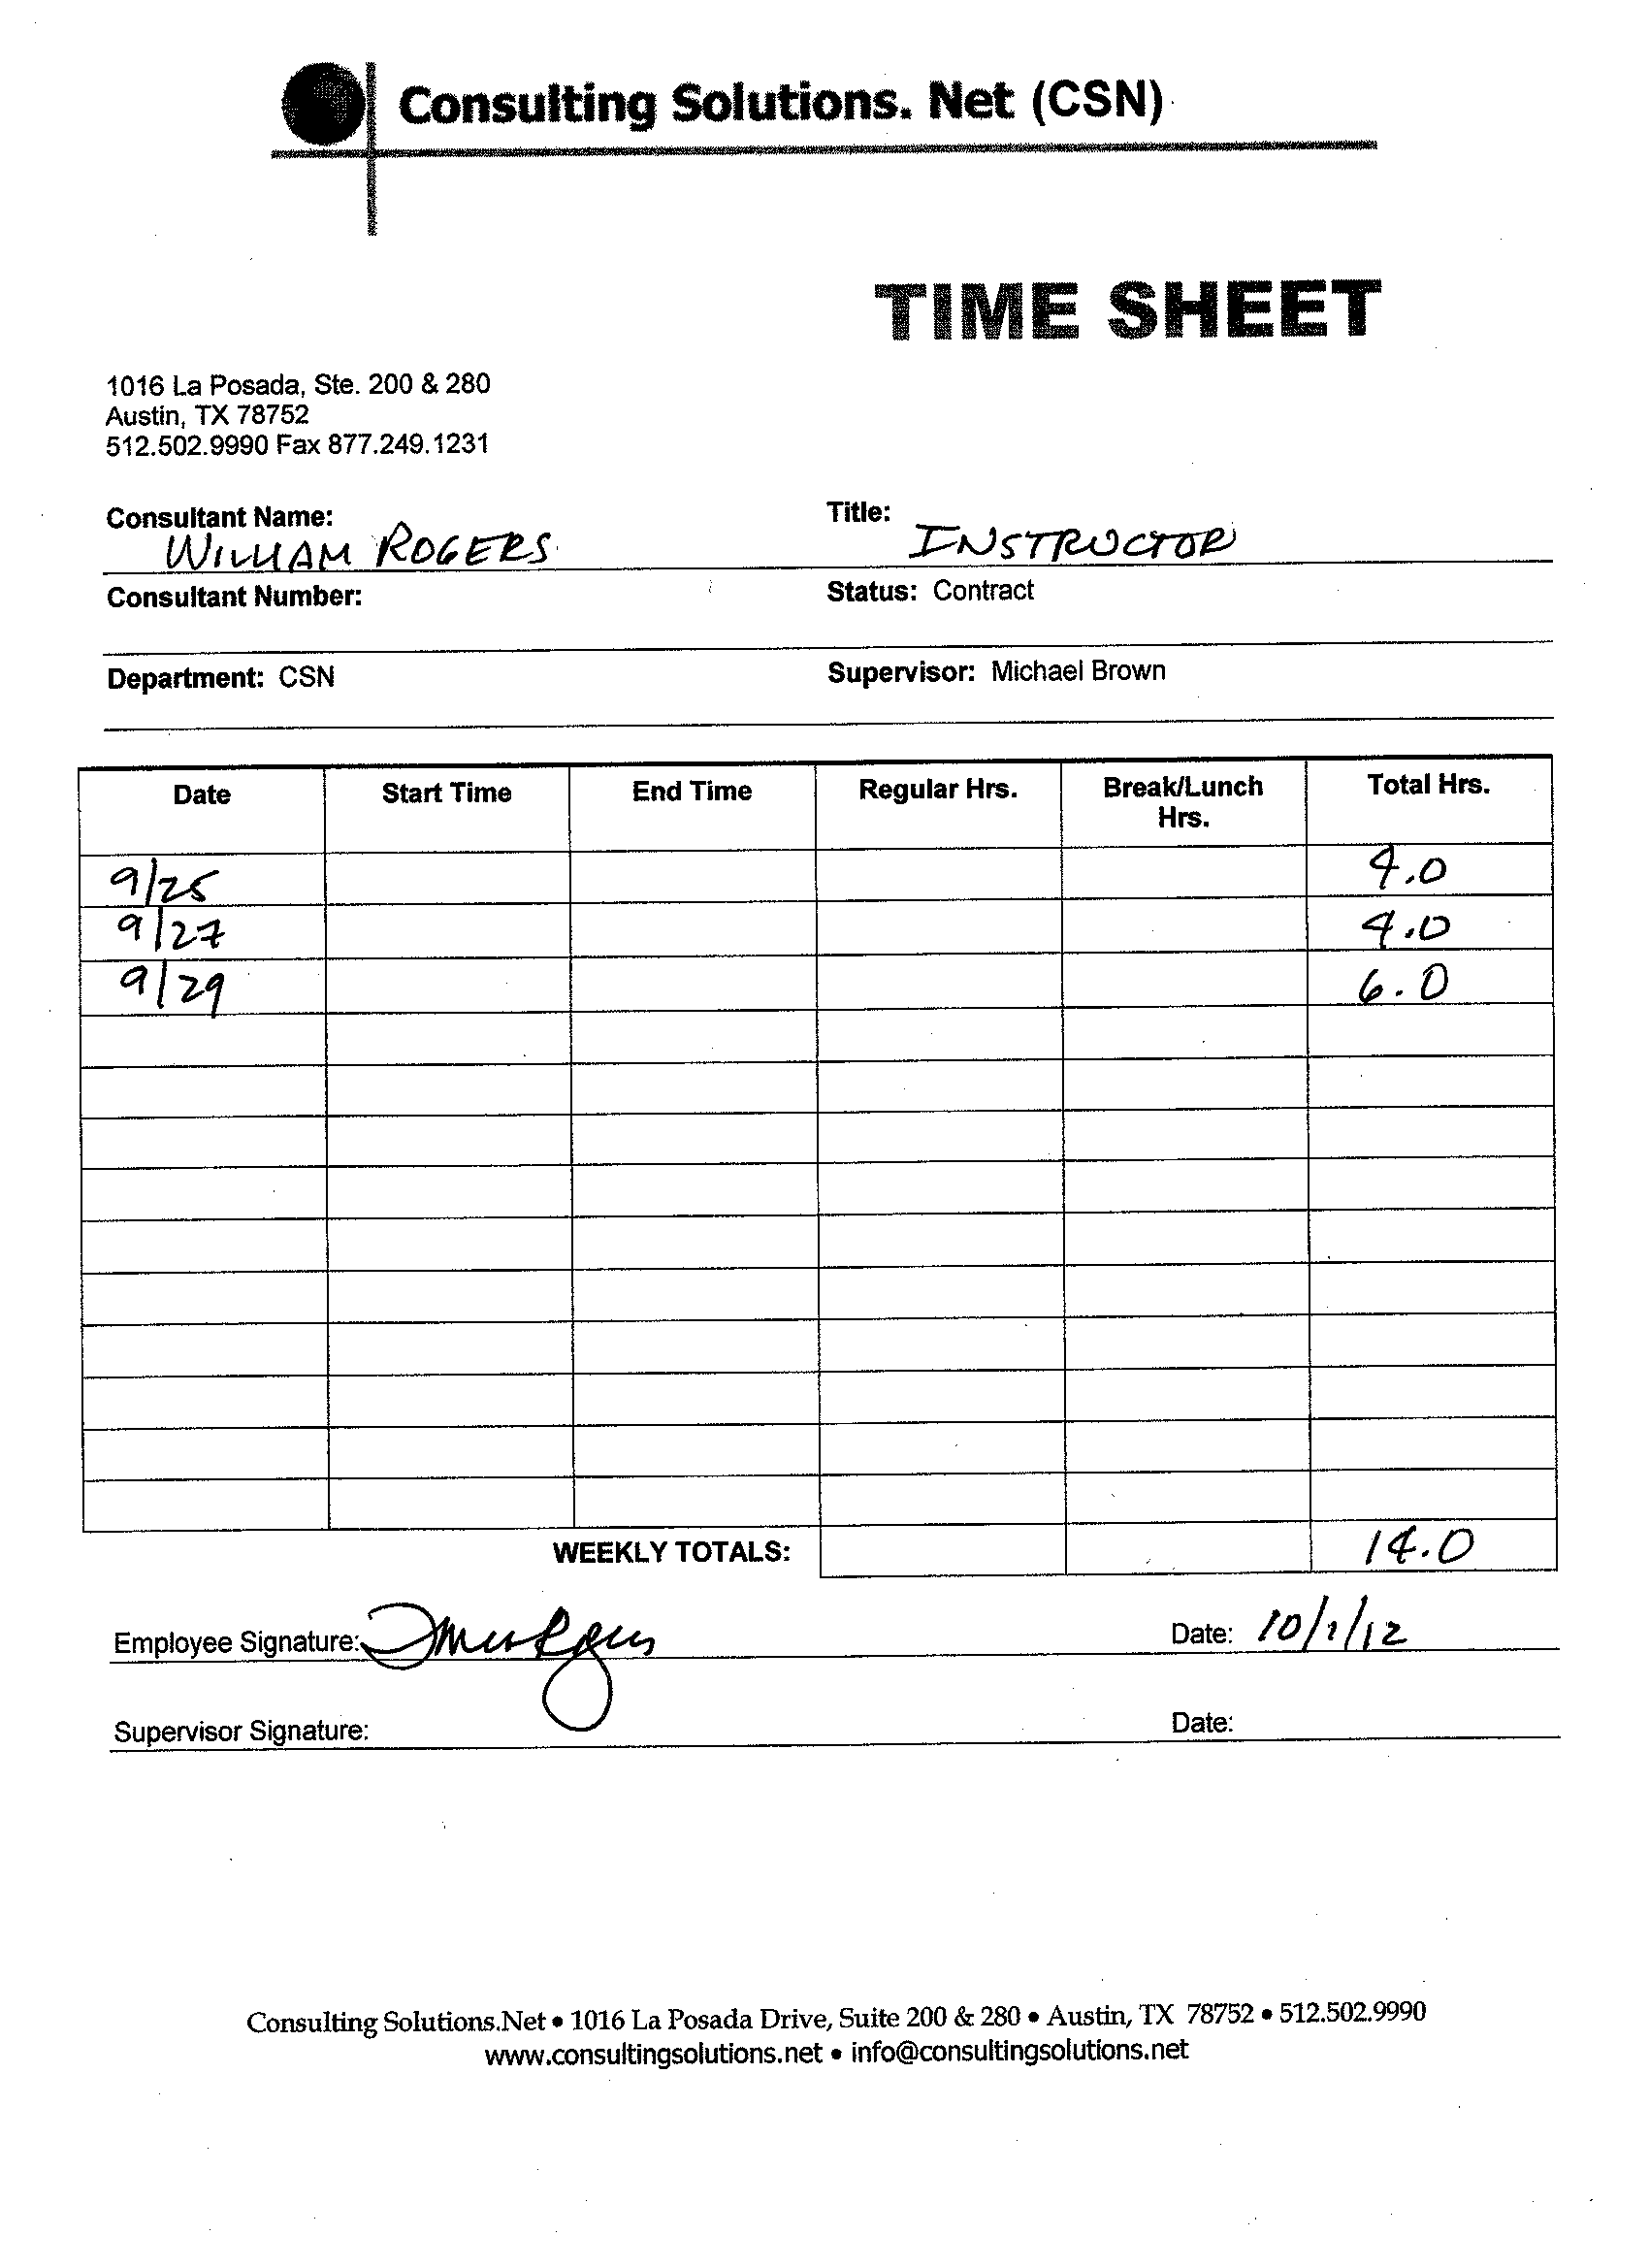 Consulting Solutions. Net (CSN)
TIME SHEET
1016 La Posada, Ste. 200 & 280
Austin, TX 78752
512.502.9990 Fax 877.249.1231
Consultant Name: WILLIAM ROGERS Title: INSTRUCTOR
Consultant Number: Status: Contract
Department: CSN Supervisor: Michael Brown
Date Start Time End Time Regular Hrs. Break/Lunch Hrs. Total Hrs.
9/25 4.0
9/27 4.0
9/29 6.0
WEEKLY TOTALS: 14.0
Employee Signature: Date: 10/1/12
Supervisor Signature: Date:
Consulting Solutions.Net • 1016 La Posada Drive, Suite 200 & 280 • Austin, TX 78752 • 512.502.9990
www.consultingsolutions.net • info@consultingsolutions.net